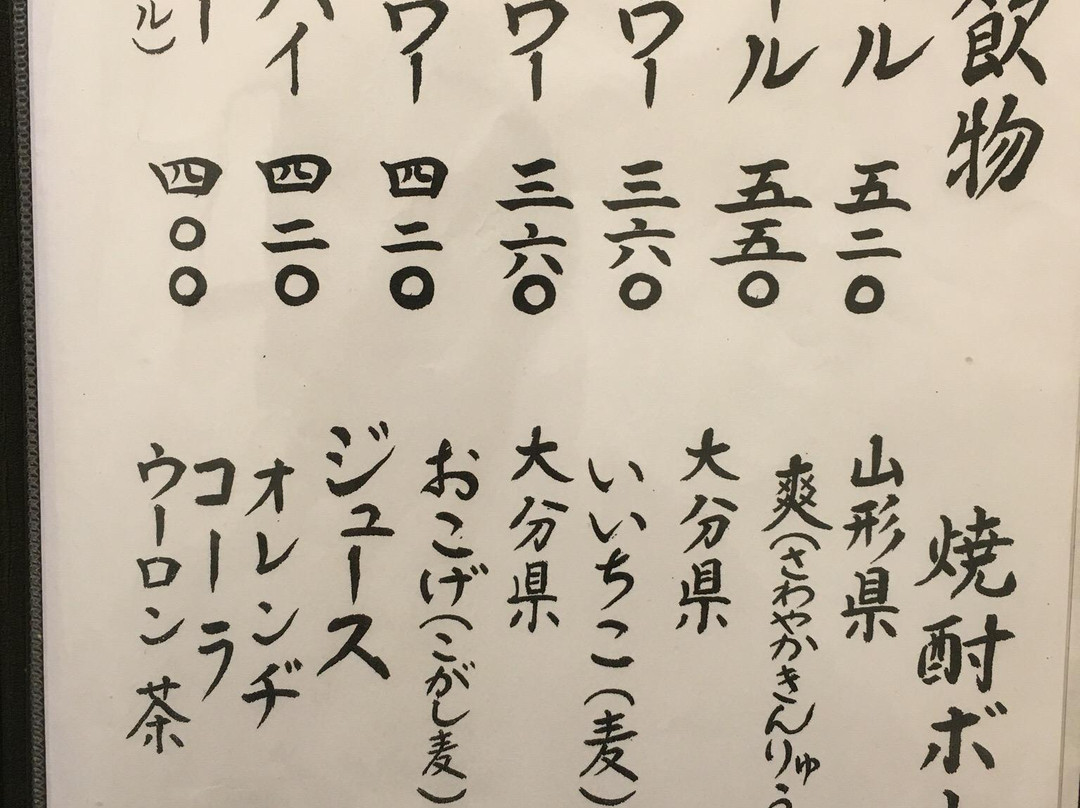 飲物
ル 五二〇
ール 五五〇
ワー 三六〇
ワー 三六〇
ワー 四二〇
ハイ 四二〇
ー
ル) 四〇〇
焼酎ボ
山形県
爽(さわやかきんりゅう
大分県
いいちこ(麦)
大分県
おこげ(こがし麦)
ジュース
オレンヂ
コーラ
ウーロン茶